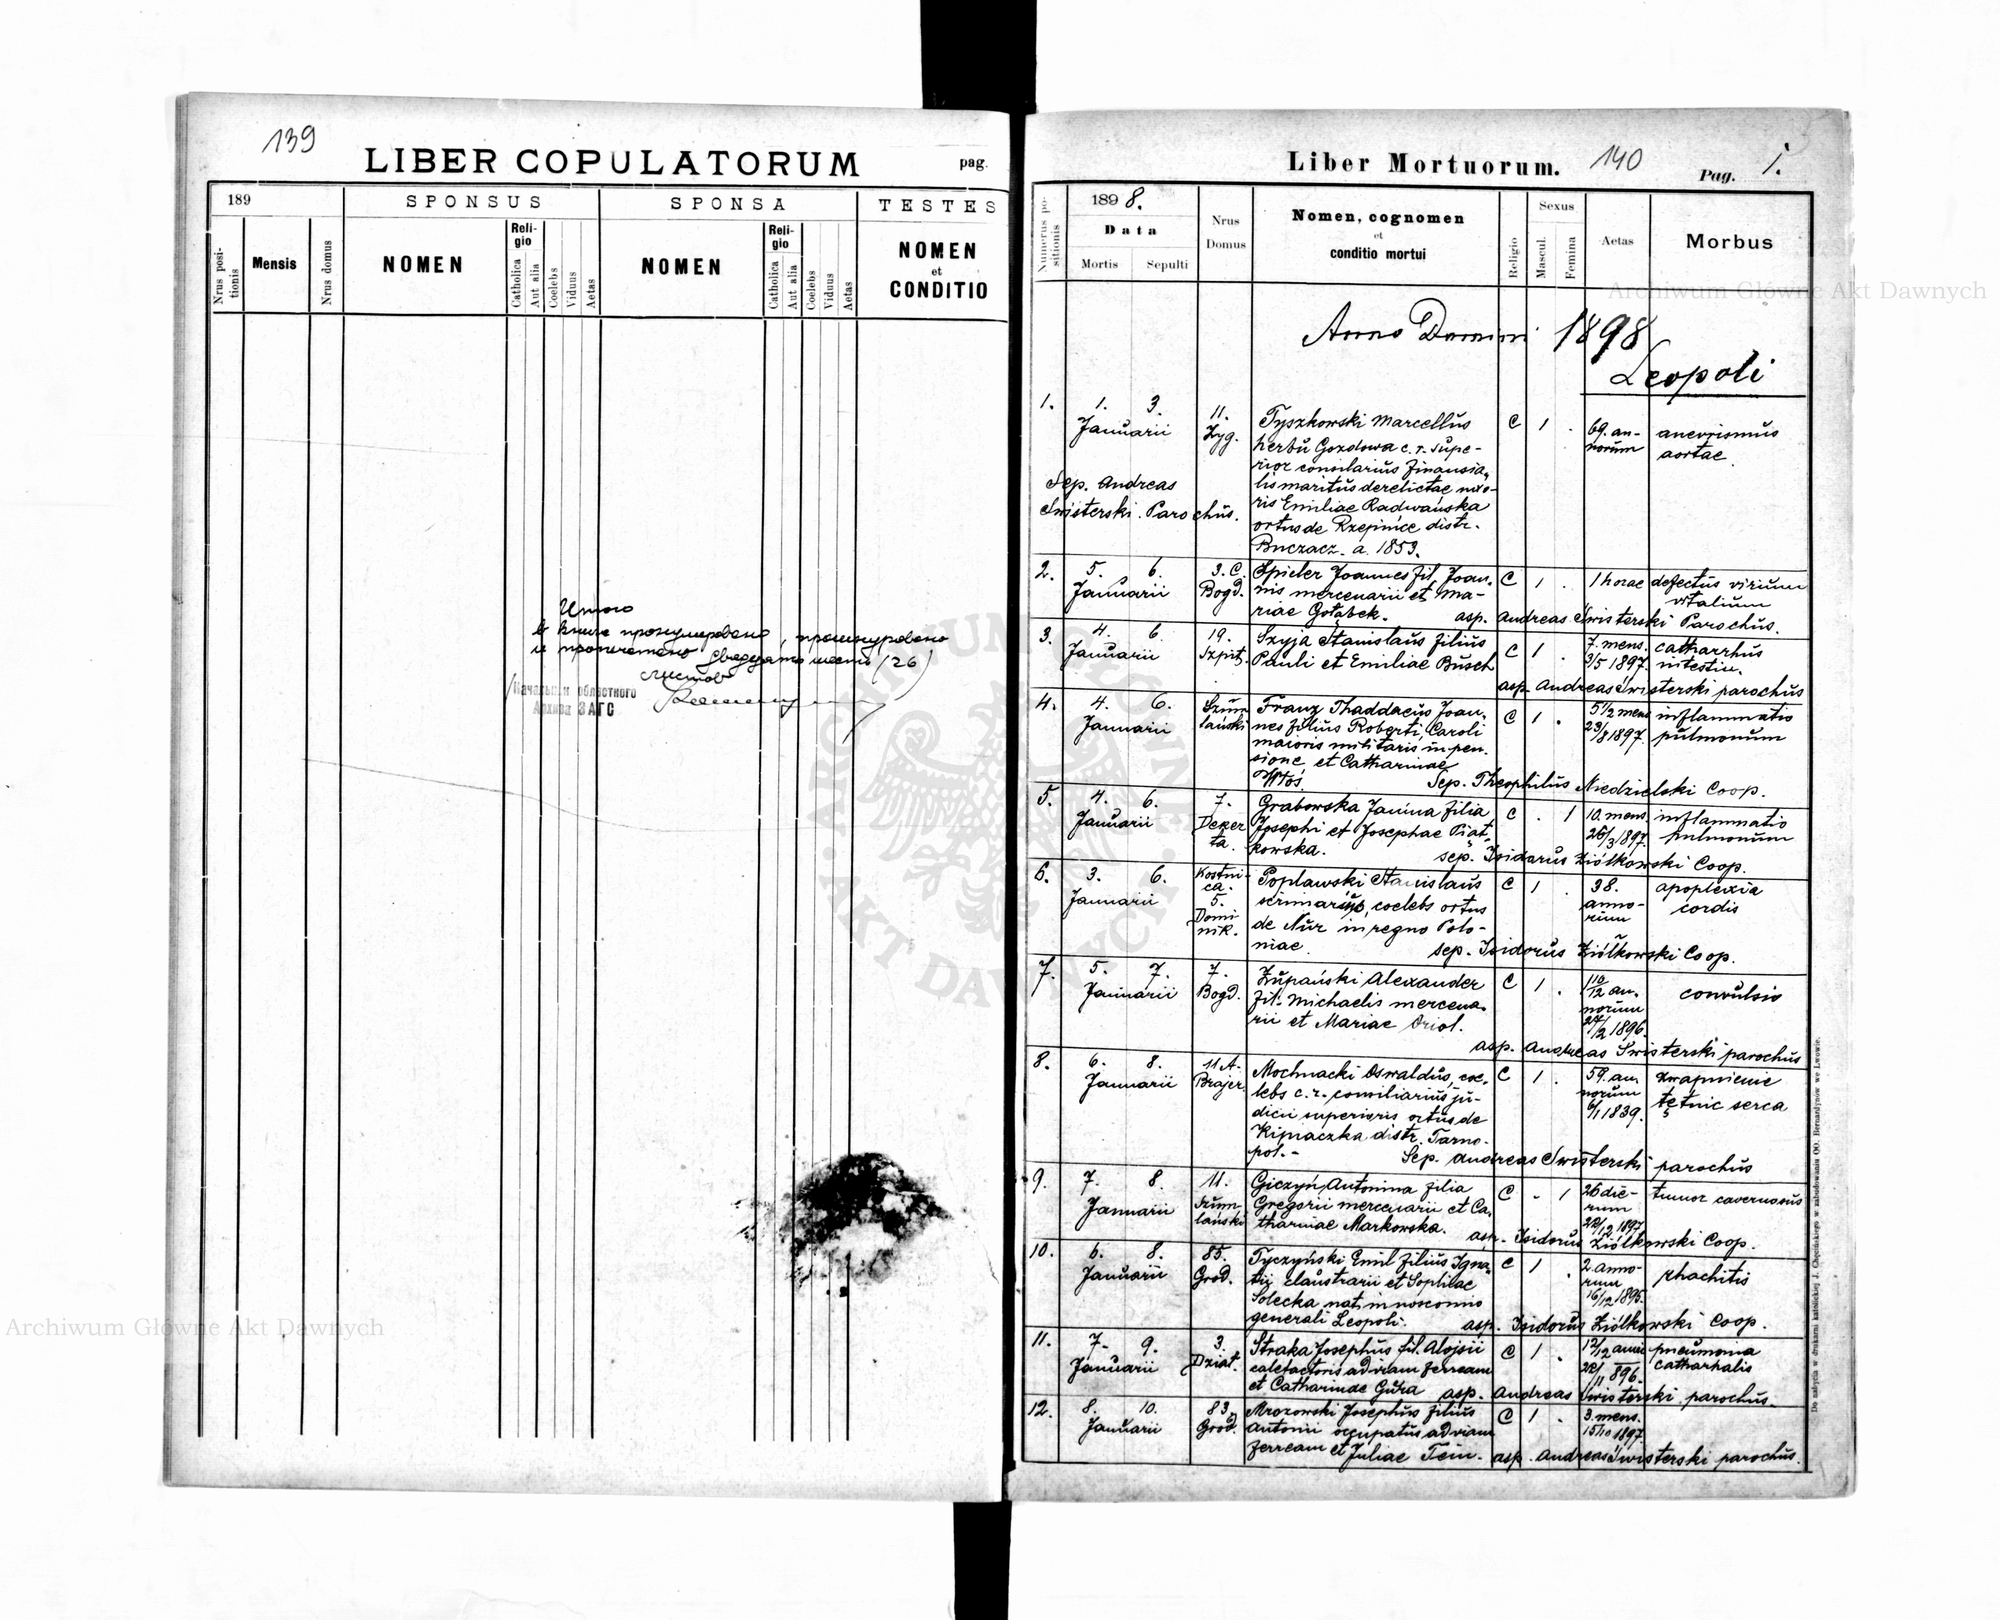 139
LIBER COPULATORUM
pag.
189
SPONSUS
SPONSA
TESTES
Nrus posi-
tionis
Mensis
Nrus domus
NOMEN
Reli-
gio
Catholica
Aut alia
Coelebs
Viduus
Aetas
NOMEN
Reli-
gio
Catholica
Aut alia
Coelebs
Viduus
Aetas
NOMEN
et
CONDITIO
Итого
в книге пронумеровано, прошнуровано
и пропечатано двадцать шесть (26)
листов
Начальник областного
Архива ЗАГС
Liber Mortuorum.
140
Pag. 1.
Numerus po-
sitionis
1898.
Data
Mortis
Sepulti
Nrus
Domus
Nomen, cognomen
et
conditio mortui
Religio
Sexus
Mascul.
Femina
Aetas
Morbus
Anno Domini 1898
Leopoli
1.
1. 3.
Januarii
11.
Zyg.
Tyszkowski Marcellus
herbu Gozdowa c. r. supe-
rior consilarius finansia-
lis maritus derelictae uxo-
ris Emiliae Radwańska
ortus de Rzepińce distr.
Buczacz. a. 1853.
C 1 .
69. an-
norum
anevrismus
aortae.
Sep. Andreas
Świsterski. Parochus.
2.
5. 6.
Januarii
3. C.
Bogd.
Spieler Joannes fil. Joan-
nis mercenarii et Ma-
riae Gołąbek.
C 1 .
1 horae
defectus virium
vitalium
asp. Andreas Świsterski Parochus.
3.
4. 6.
Januarii
19.
Szpit.
Szyja Stanislaus filius
Pauli et Emiliae Busch
C 1 .
7. mens.
3/5 1897.
catharrhus
intestin.
asp. Andreas Świsterski parochus
4.
4. 6.
Januarii
Szum-
lański
Franz Thaddaeus Joan-
nes filius Roberti, Caroli
maioris militaris in pen-
sione et Catharinae
C 1 .
5 1/2 mens
23/8 1897.
inflammatio
pulmonum
Sep. Theophilus Niedzielski Coop.
5.
4. 6.
Januarii
7.
Dekerta.
Grabowska Janina filia
Josephi et Josephae Piąt-
kowska.
C . 1
10. mens
26/3 1897.
inflammatio
pulmonum
sep. Isidorus Ziółkowski Coop.
6.
3. 6.
Januarii
Kostni-
ca.
5.
Domi-
nik.
Popławski Stanislaus
coelebs ortus
de Nur in regno Polo-
niae.
C 1 .
38.
anno-
rum
apoplexia
cordis
sep. Isidorus Ziółkowski Coop.
7.
5. 7.
Januarii
7.
Bogd.
Żupański Alexander
fil. Michaelis mercena-
rii et Mariae Oriol.
C 1 .
1 10/12 an-
norum
27/2 1896.
convulsio
asp. Andreas Świsterski parochus
8.
6. 8.
Januarii
11 A.
Brajer.
Mochnacki Oswaldus, coe-
lebs c. r. consiliarius ju-
dicii superioris ortus de
Kipiaczka distr. Tarno-
pol.-
C 1 .
59. an-
norum
6/1 1839.
zwapnienie
tętnic serca
Sep. Andreas Świsterski parochus
9.
7. 8.
Januarii
11.
Szum-
lański
Giczyń Antonina filia
Gregorii mercenarii et Ca-
tharinae Markowska.
C . 1
26 die-
rum
22/12 1897
tumor cavernosus
asp. Isidorus Ziółkowski Coop.
10.
6. 8.
Januarii
85.
Grod.
Tyczyński Emil filius Igna-
tii claustrarii et Sophiae
Solecka nat. in noscomio
generali Leopoli.
C 1 .
2. anno-
rum
16/12 1895.
rhachitis
asp. Isidorus Ziółkowski Coop.
11.
7. 9.
Januarii
3.
Dział.
Straka Josephus fil. Aloysii
calefactoris ad viam ferream
et Catharinae Gura
C 1 .
22/11 896.
pneumonia
catharhalis
asp. Andreas Świsterski parochus.
12.
8. 10.
Januarii
83.
Grod.
Mrozowski Josephus filius
Antonii occupatus ad viam
ferream et Juliae Tein.
C 1 .
3. mens.
15/10 1897.
asp. Andreas Świsterski parochus.
Do nabycia w drukarni katolickiej J. Chęcińskiego w zabudowaniu OO. Bernardynów we Lwowie.
Archiwum Główne Akt Dawnych
Archiwum Główne Akt Dawnych
ARCHIWUM GŁÓWNE
AKT DAWNYCH